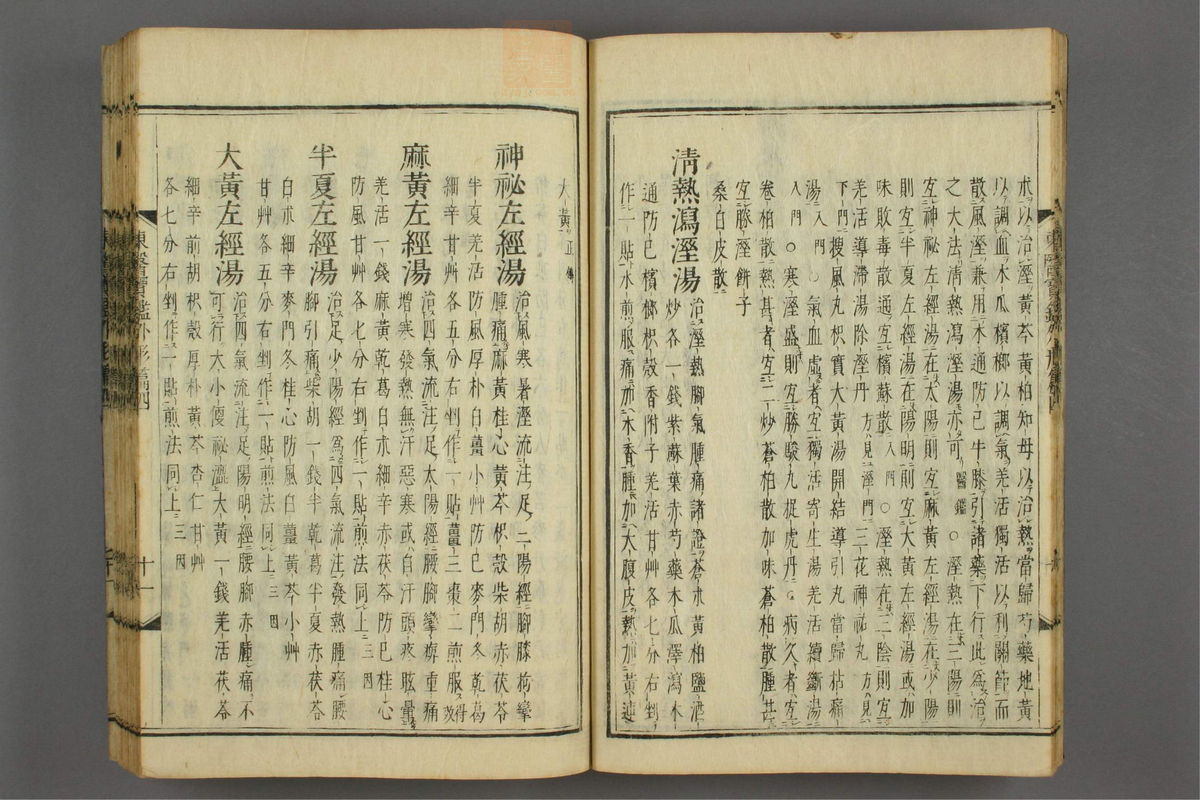 朮以治溼黃芩黃柏知母以治熱當歸芍藥地黃
以調血木瓜檳榔以調氣羌活獨活以利關節而
散風溼兼用木通防己牛膝引諸藥下行此為治
之大法清熱瀉溼湯亦可醫鑑○溼熱在三陽則
宜神祕左經湯在太陽則宜麻黃左經湯在少陽
則宜半夏左經湯在陽明則宜大黃左經湯或加
味敗毒散通宜檳蘇散入門○溼熱在三陰則宜
羌活導滯湯除溼丹方見溼門三花神祐丸方見
下門搜風丸枳實大黃湯開結導引丸當歸枯痛
湯入門○氣血虛者宜獨活寄生湯羌活續斷湯
入門○寒溼盛則宜勝駿丸捉虎丹○病久者宜
卷柏散熱甚者宜二炒蒼柏散加味蒼柏散腫甚
宜勝溼餅子
桑白皮散
清熱瀉溼湯治溼熱腳氣腫痛諸證蒼朮黃柏鹽酒
炒各一錢紫蘇葉赤芍藥木瓜澤瀉木
通防己檳榔枳殼香附子羌活甘艸各七分右剉
作一貼水煎服痛加木香腫加大腹皮熱加黃連
大黃正傳
神祕左經湯治風寒暑溼流注足三陽經腳膝拘攣
腫痛麻黃桂心黃芩枳殼柴胡赤茯苓
半夏羌活防風厚朴白薑小艸防己麥門冬乾葛
細辛甘艸各五分右剉作一貼薑三棗二煎服得效
麻黃左經湯治四氣流注足太陽經腰腳攣痹重痛
增寒發熱無汗惡寒或自汗頭疼眩暈
羌活一錢麻黃乾葛白朮細辛赤茯苓防己桂心
防風甘艸各七分右剉作一貼煎法同上三因
半夏左經湯治足少陽經為四氣流注發熱腫痛腰
腳引痛柴胡一錢半乾葛半夏赤茯苓
白朮細辛麥門冬桂心防風白薑黃芩小艸
甘艸各五分右剉作一貼煎法同上三因
大黃左經湯治四氣流注足陽明經腰腳赤腫痛不
可行大小便祕澀大黃一錢羌活茯苓
細辛前胡枳殼厚朴黃芩杏仁甘艸
各七分右剉作一貼煎法同上三因
東醫寶鑑外形篇四
十一